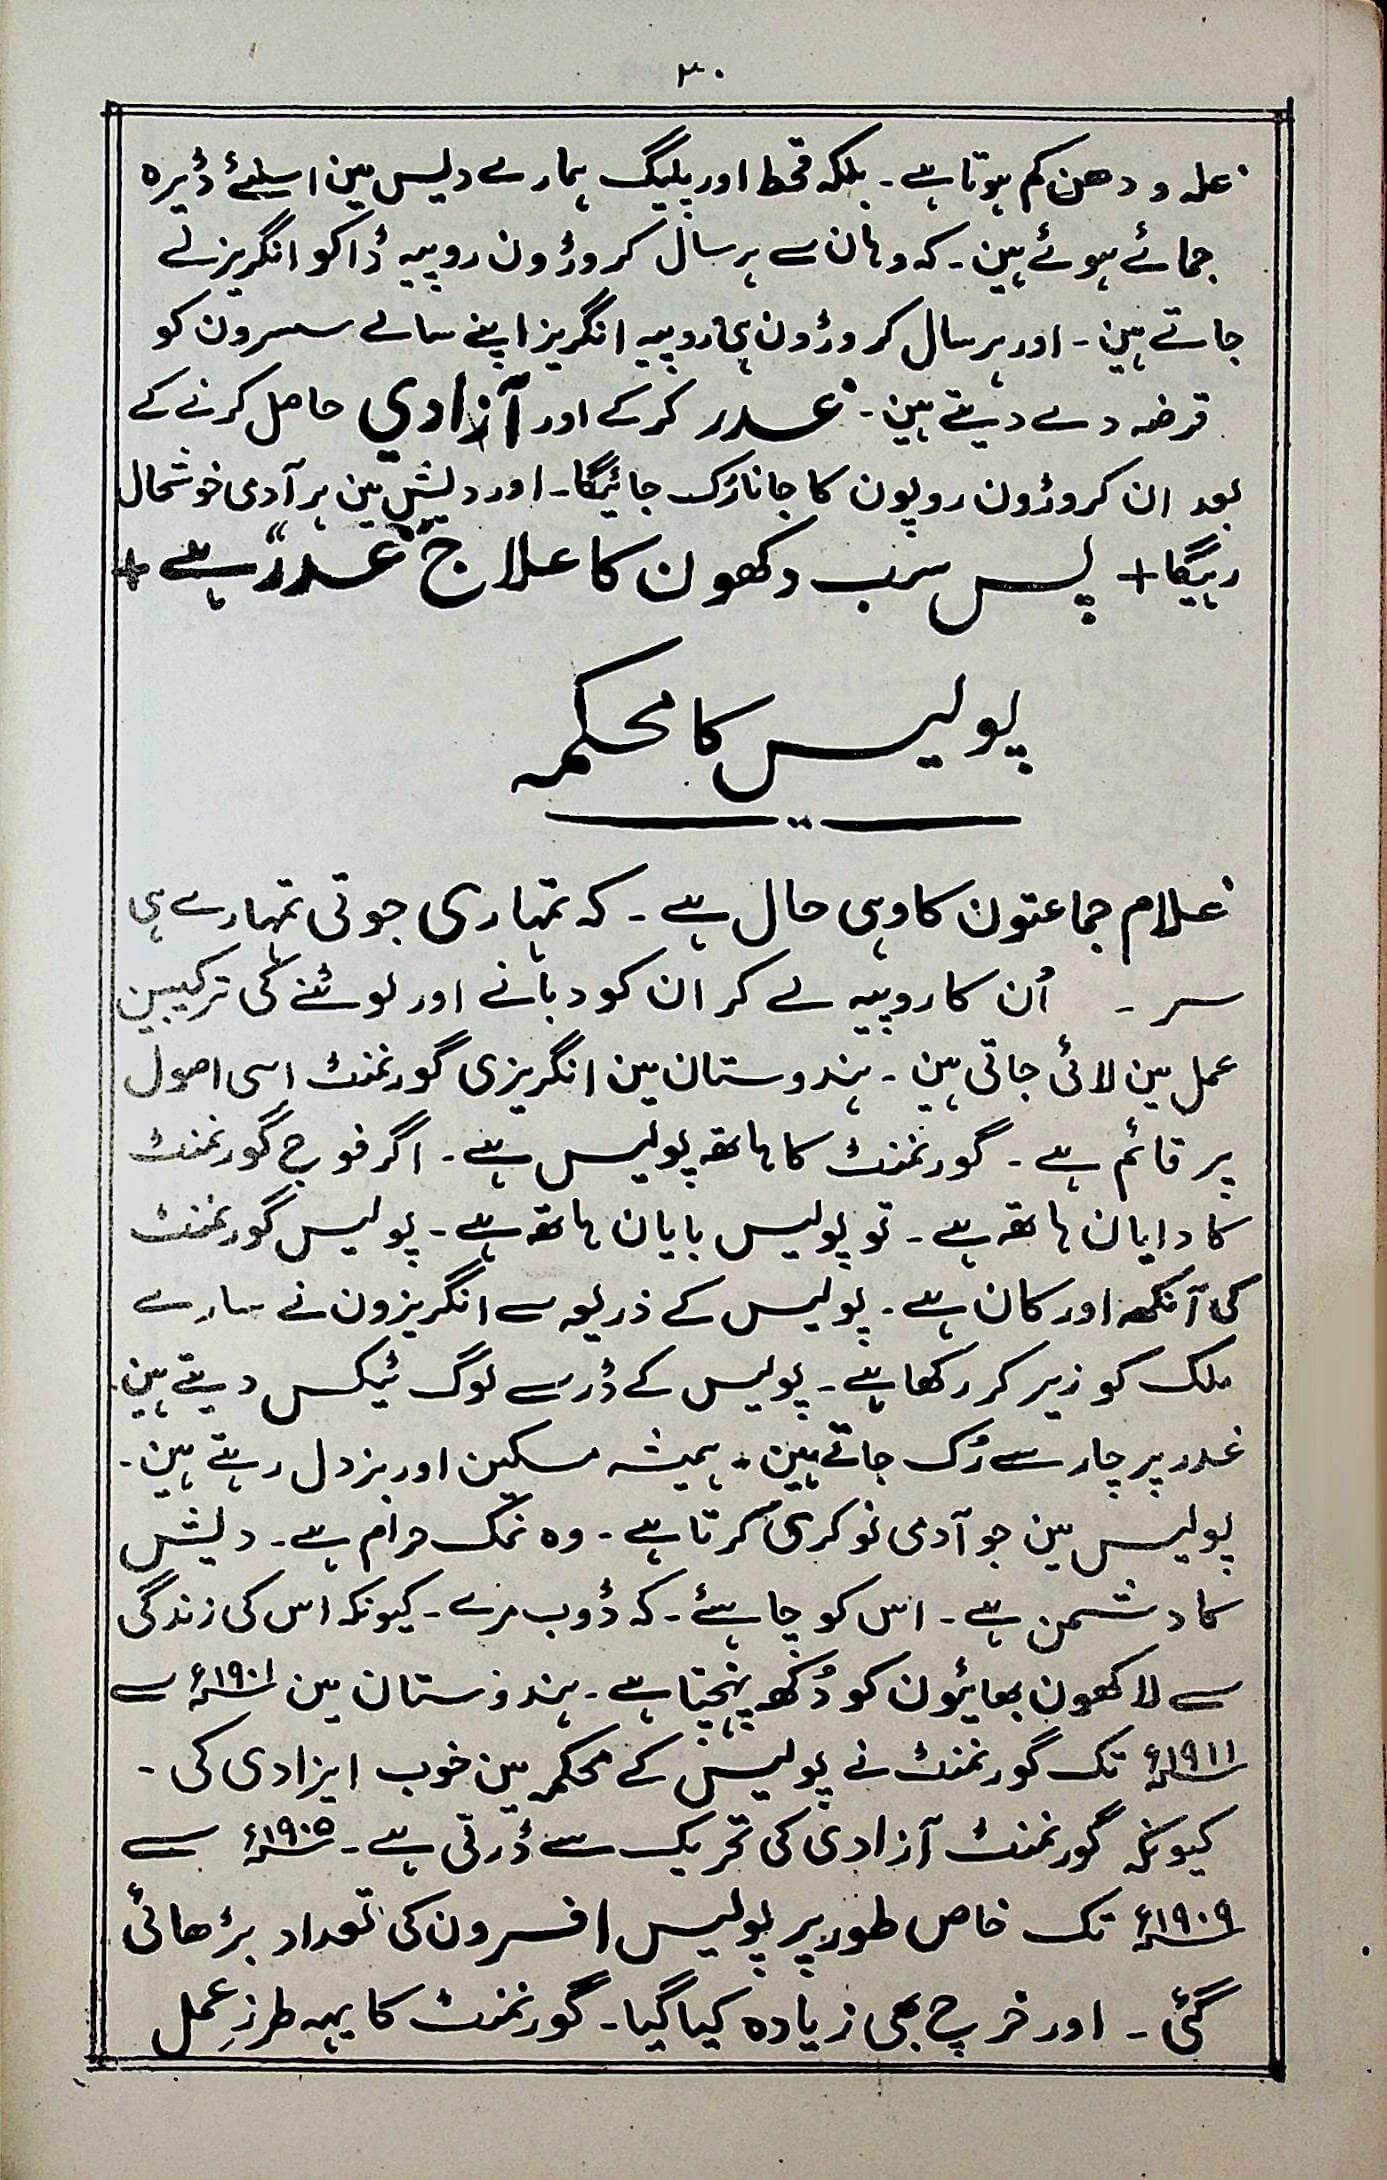 ۳۰
غلہ و دھن کم ہوتا ہے ۔ بلکہ قحط اور پلیگ ہمارے دیس مین اسلئے ڈیرہ
جمائے ہوئے ہین ۔ کہ وہان سے ہر سال کروڑون روپیہ ڈاکو انگریز لے
جاتے ہین ۔ اور ہر سال کروڑون ہی روپیہ انگریز اپنے سالے سسرون کو
قرضہ دے دیتے ہین ۔ غدر کرکے اور آزادی حاصل کرنے کے
بعد ان کروڑون روپون کا جانا رُک جائیگا ۔ اور دیش مین ہر آدمی خوشحال
رہیگا + پس سب دکھون کا علاج ”غدر“ ہے +
پولیس کا محکمہ
غلام جماعتون کا وہی حال ہے ۔ کہ تمہاری جوتی تمہارے ہی
سر ۔ اُن کا روپیہ لے کر ان کو دبانے اور لوٹنے کی ترکیبین
عمل مین لائی جاتی ہین ۔ ہندوستان مین انگریزی گورنمنٹ اسی اصول
پر قائم ہے ۔ گورنمنٹ کا ہاتھ پولیس ہے ۔ اگر فوج گورنمنٹ
کا دایان ہاتھ ہے ۔ تو پولیس بایان ہاتھ ہے ۔ پولیس گورنمنٹ
کی آنکھ اور کان ہے ۔ پولیس کے ذریعہ سے انگریزون نے سارے
ملک کو زیر کر رکھا ہے ۔ پولیس کے ڈر سے لوگ ٹیکس دیتے ہین
غدر پرچار سے رُک جاتے ہین ۔ ہمیشہ مسکین اور بزدل رہتے ہین ۔
پولیس مین جو آدمی نوکری کرتا ہے ۔ وہ نمک حرام ہے ۔ دیش
کا دشمن ہے ۔ اس کو چاہئے ۔ کہ ڈوب مرے ۔ کیونکہ اس کی زندگی
سے لاکھون بھائیون کو دُکھ پہنچتا ہے ۔ ہندوستان مین ۱۹۰۱ء سے
۱۹۱۱ء تک گورنمنٹ نے پولیس کے محکمہ مین خوب ایزادی کی ۔
کیونکہ گورنمنٹ آزادی کی تحریک سے ڈرتی ہے ۔ ۱۹۰۵ء سے
۱۹۰۹ء تک خاص طور پر پولیس افسرون کی تعداد بڑھائی
گئی ۔ اور خرچ بھی زیادہ کیا گیا ۔ گورنمنٹ کا یہہ طرزِ عمل